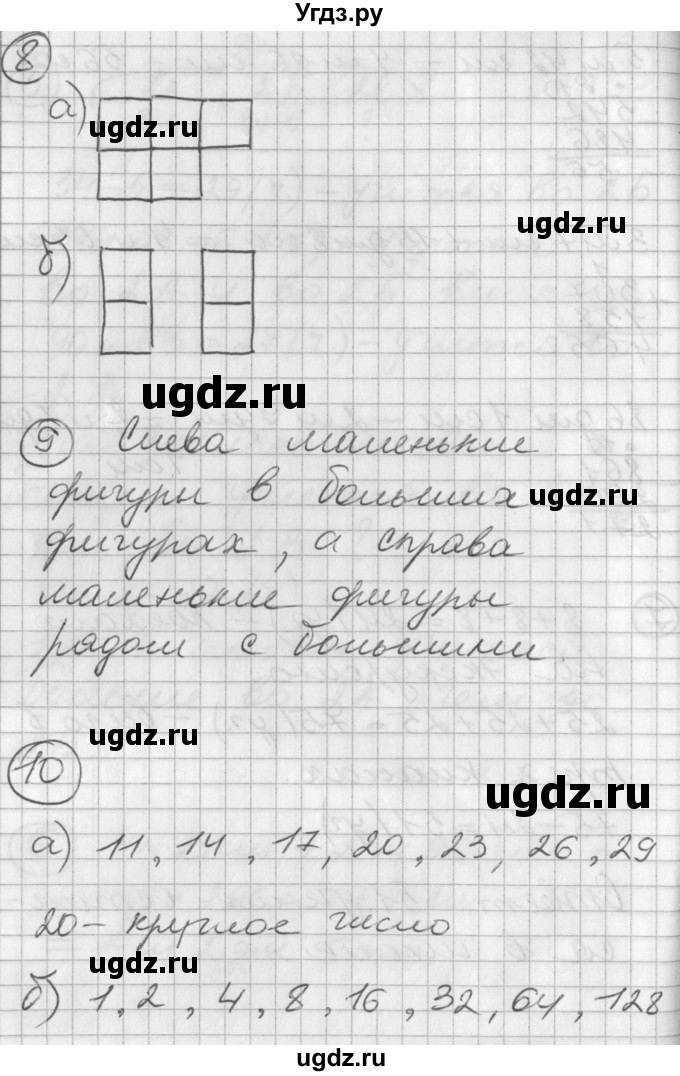 Угдз.ру
8
а)
ugdz.ru
ugdz.ru
б)
ugdz.ru
9 Слева маленькие
фигуры в больших
ugdz.ru
фигурах, а справа
маленькие фигуры
рядом с большими.
ugdz.ru
10
ugdz.ru
а) 11, 14, 17, 20, 23, 26, 29
20 - круглое число
ugdz.ru
б) 1, 2, 4, 8, 16, 32, 64, 128
ugdz.ru